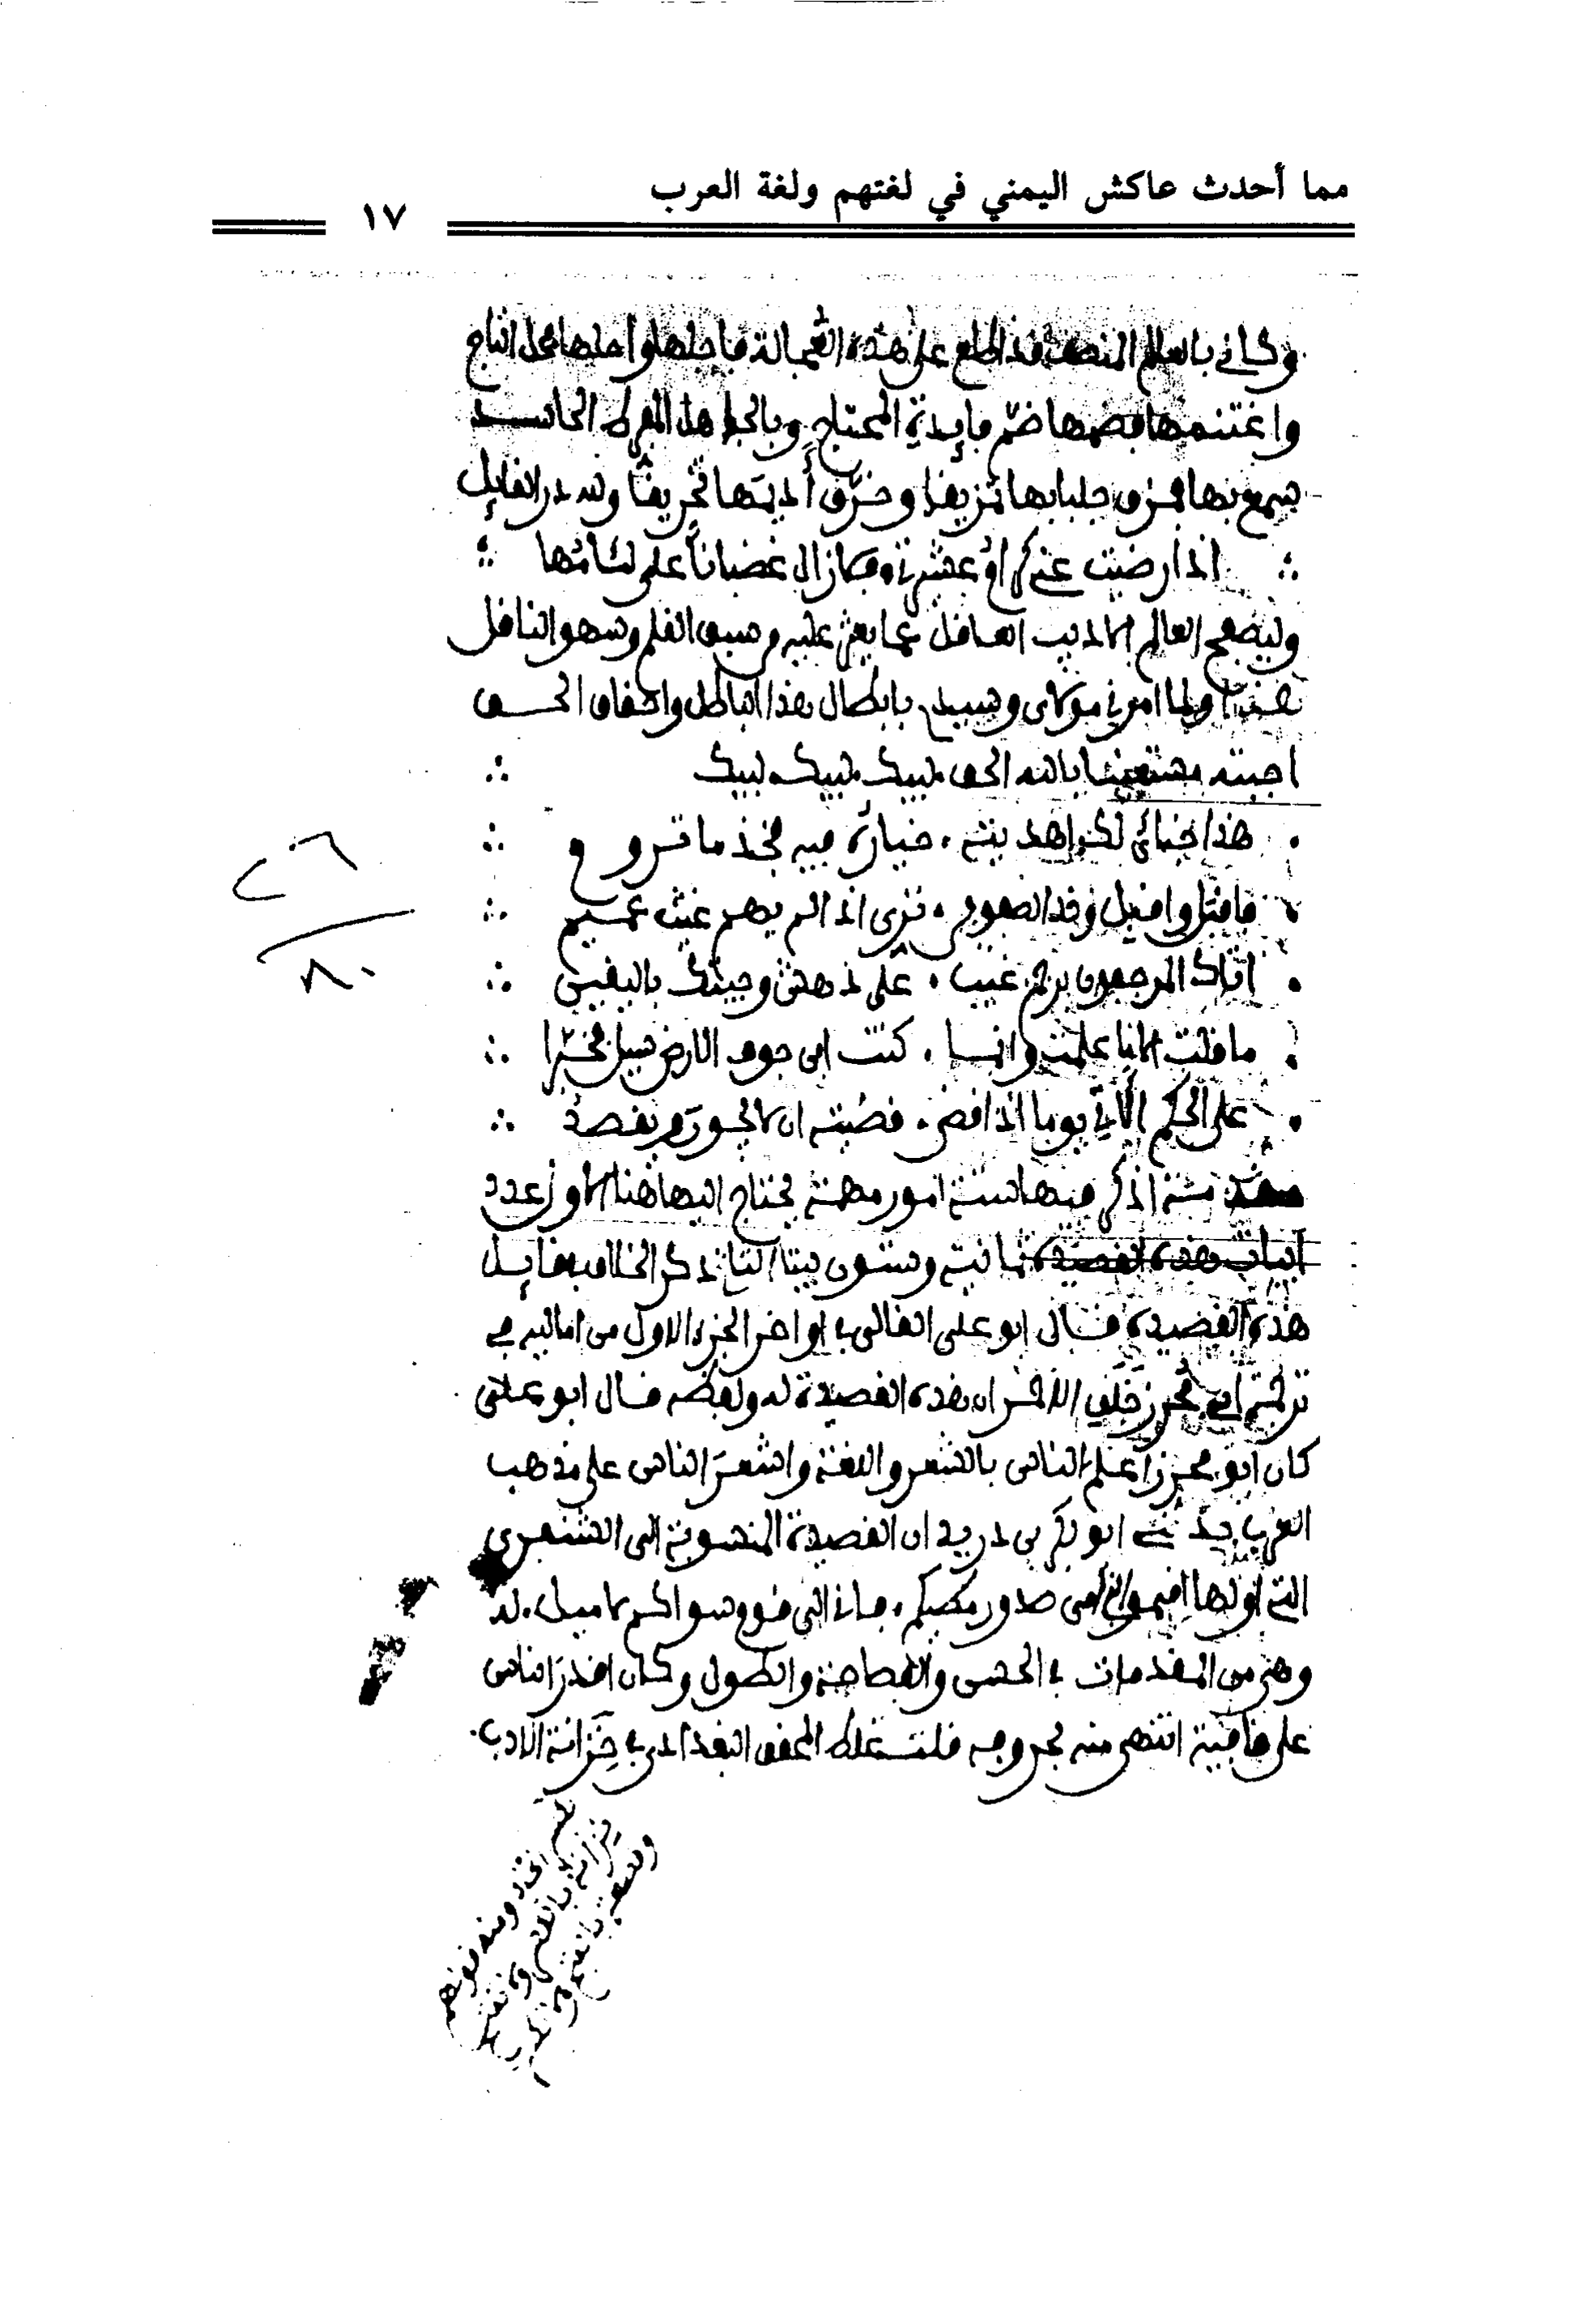 مما أحدث عاكش اليمني في لغتهم ولغة العرب
١٧
وكأني بالعالم المنصف قد اطلع على هذه العجالة فأجلها وأحلها محل التاج
واغتنمها فضمها ضم فايدة المحتاج وبالجاهل المفرط الحاسد
سمع بها فمزق جلبابها تمزيقا وخرق أديمها تخريقا ولله در القايل
اذا رضيت عني كرام عشيرتي فما زال غضبانا على لئامها
وليصفح العالم الاديب العاقل عما يعثر عليه من سبق القلم وسهو الناقل
هذا ولما امرني مولاى وسيدي بابطال هذا الباطل واحقاق الحق
اجبته مستعينا بالله الحق لبيك لبيك لبيك
هذا جناي لكم اهديته خياره فيه فخذ ما تروم
اتاك المرجفون برجم غيب على دهش وجيتك باليقين
على الحكم الماتي يوما اذا قضى قضيته ان لا يجور ويقصد
مقدمة اذكر فيها ستة امور مهمة يحتاج اليها هنا الاول عدد
ابيات هذه القصيدة ثمانية وستون بيتا الثاني ذكر الخلاف بقايل
هذه القصيدة قال ابو على القالى في اواخر الجزء الاول من اماليه في
ترجمة ابي محرز خلف الاحمر ان هذه القصيدة له ولفظه قال ابو على
كان ابو محرز اعلم الناس بالشعر واللغة واشعر الناس على مذهب
العرب حدثني ابو بكر بن دريد ان القصيدة المنسوبة الى الشنفرى
التي اولها اقيموا بني امى صدور مطيكم فاني الى قوم سواكم لاميل له
وهى من المقدمات في الحسن والفصاحة والطول وكان اقدر الناس
على قافية انتهى منه بحروفه قلت غلط المحقق البغدادي في خزانة الادب